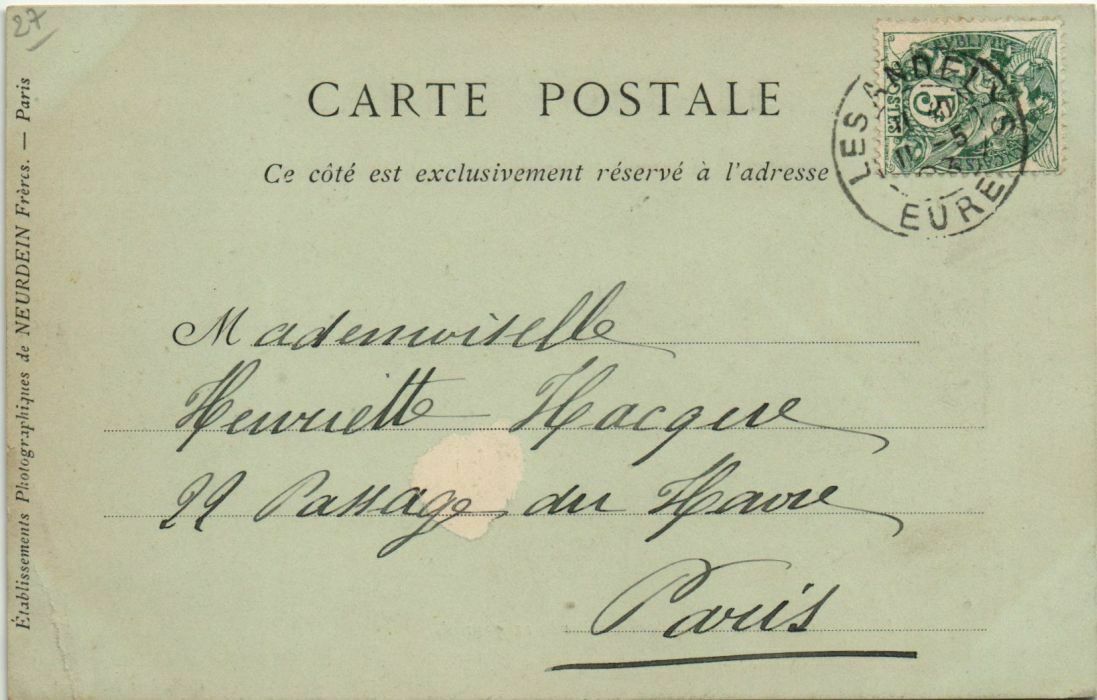 27
CARTE POSTALE
Ce côté est exclusivement réservé à l'adresse
LES ANDELYS
EURE
5
Mademoiselle
Henriette Hacque
22 Passage du Havre
Paris
Établissements Photographiques de NEURDEIN Frères. — Paris